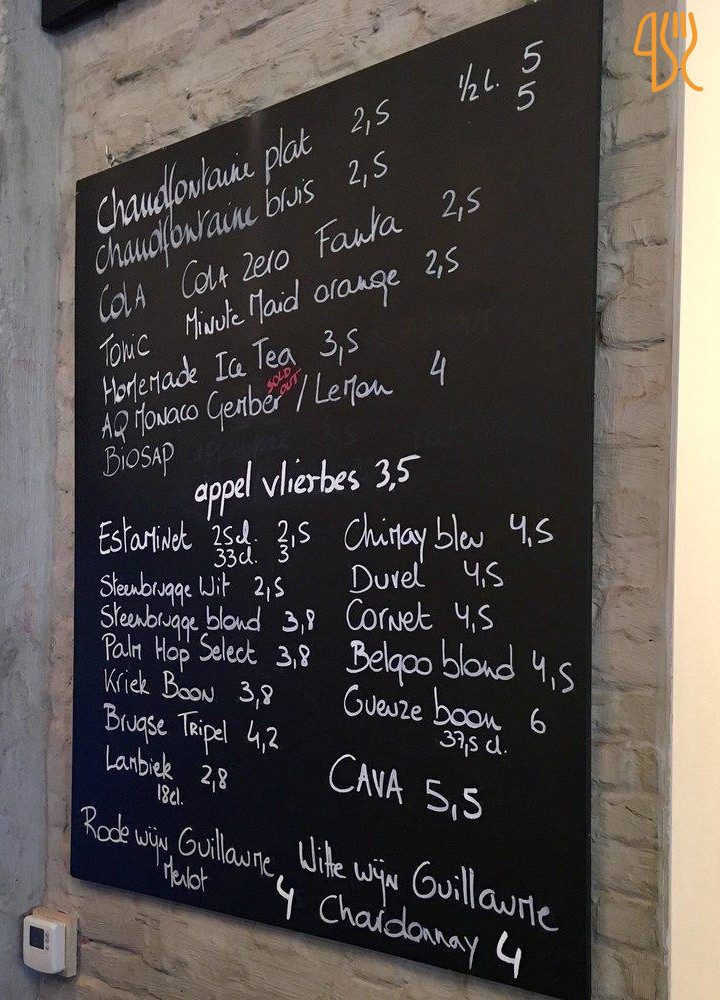 Chaudfontaine plat 2,5 1/2 L. 5
Chaudfontaine bruis 2,5 5
Cola Cola Zero Fanta 2,5
Tonic Minute Maid orange 2,5
Homemade Ice Tea 3,5
AQ Monaco Gember / Lemon 4
SOLD OUT
BIOSAP
appel vlierbes 3,5
Estaminet 25cl. 2,5
33cl. 3
Steenbrugge Wit 2,5
Steenbrugge blond 3,8
Palm Hop Select 3,8
Kriek Boon 3,8
Brugse Tripel 4,2
Lambiek 2,8
18cl.
Chimay bleu 4,5
Duvel 4,5
Cornet 4,5
Belgoo blond 4,5
Gueuze boon 6
37,5 cl.
CAVA 5,5
Rode wijn Guillaume
Merlot 4
Witte wijn Guillaume
Chardonnay 4